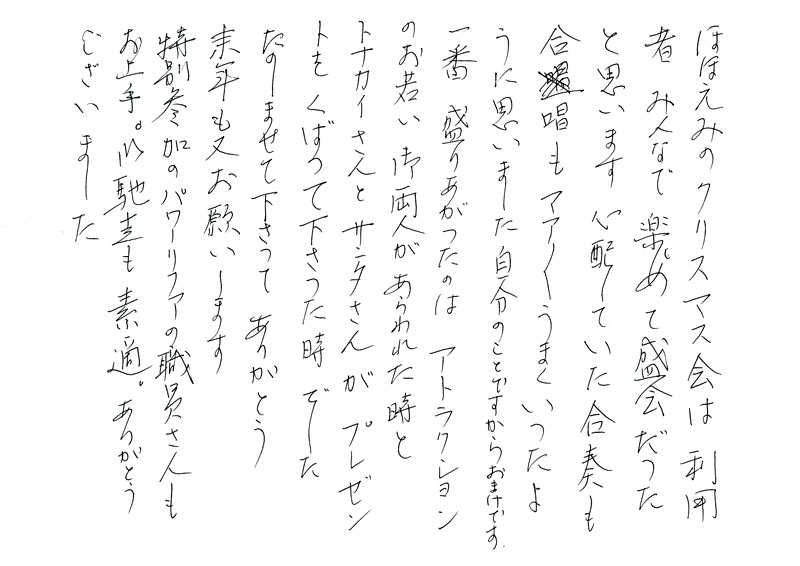 ほほえみのクリスマス会は 利用
者 みんなで 楽しめて盛会だった
と思います 心配していた合奏も
合唱も マアマアうまくいったよ
うに思いました 自分のことですからおまけです。
一番 盛りあがったのは アトラクション
のお若い御両人があらわれた時と
トナカイさんと サンタさんが プレゼン
トを くばって下さった時 でした
たのしませて下さって ありがとう
来年も又お願いします
特別参加のパワーリファの職員さんも
お上手。御馳走も 素適。ありがとう
ございました